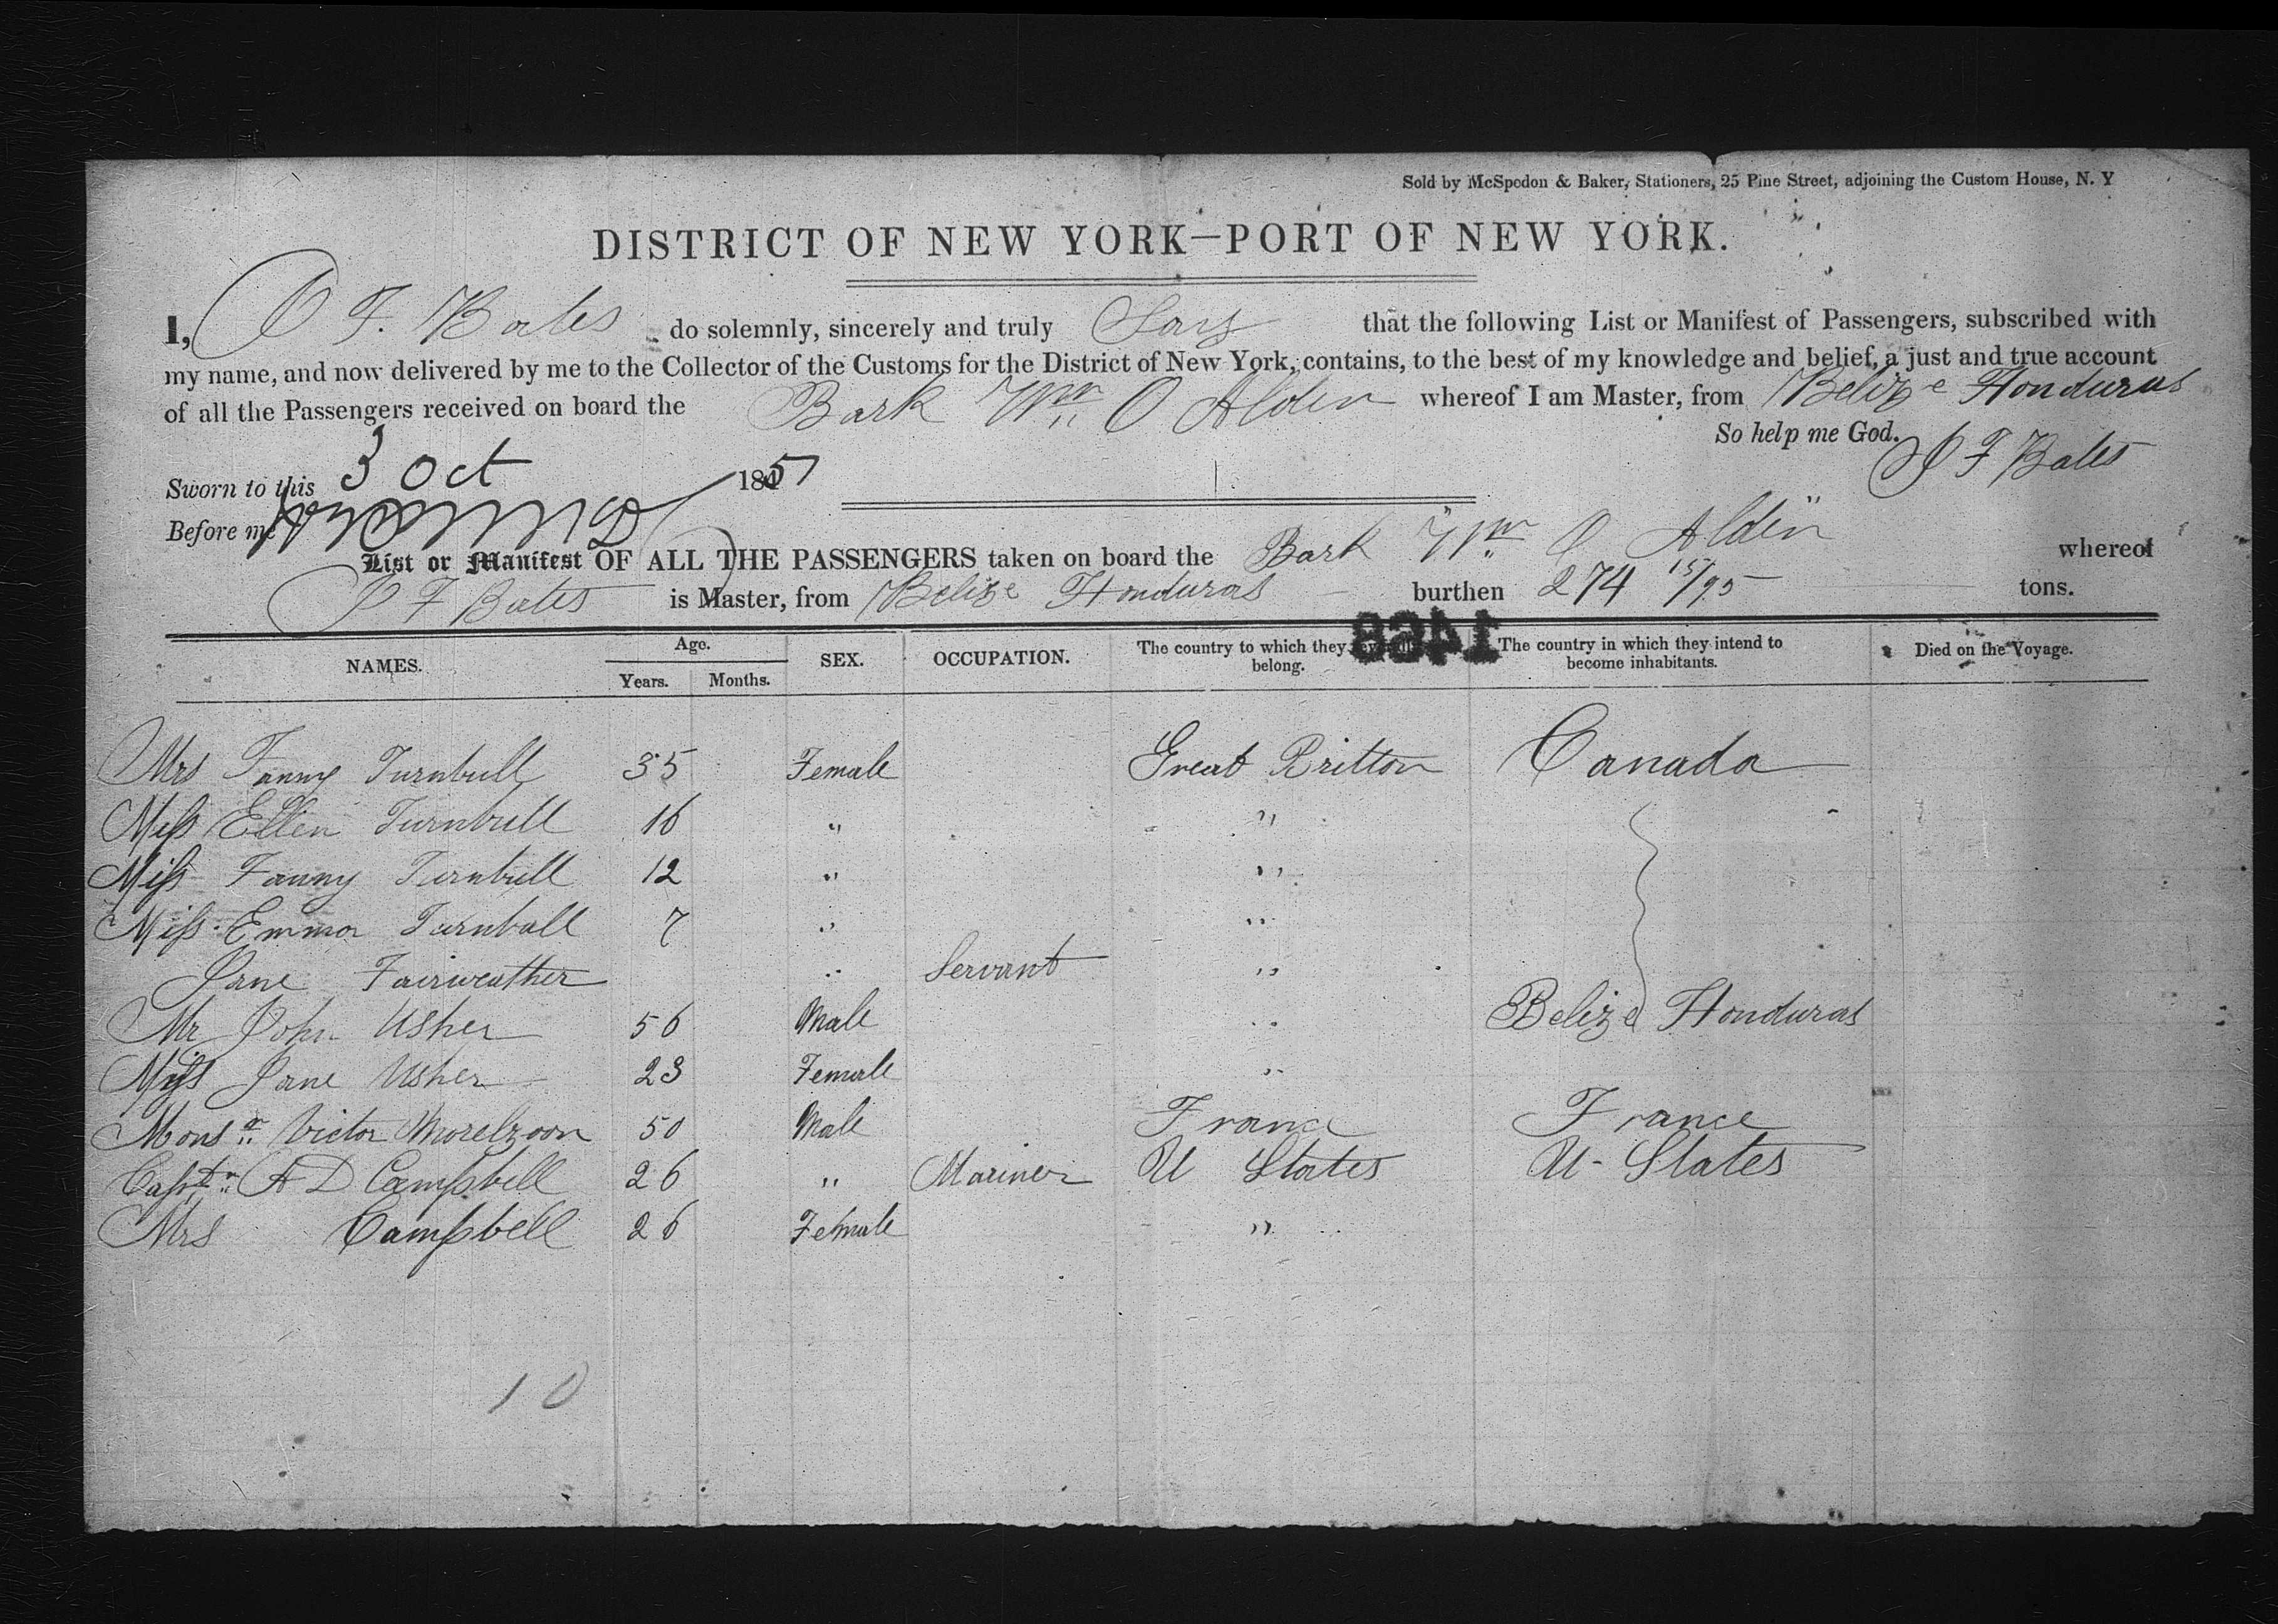 Sold by McSpedon & Baker, Stationers, 25 Pine Street, adjoining the Custom House, N. Y
DISTRICT OF NEW YORK—PORT OF NEW YORK.
I, F. Bates do solemnly, sincerely and truly that the following List or Manifest of Passengers, subscribed with
my name, and now delivered by me to the Collector of the Customs for the District of New York, contains, to the best of my knowledge and belief, a just and true account
of all the Passengers received on board the Bark Wm O Alden whereof I am Master, from Belize Honduras
So help me God. F Bates
Sworn to this 3 Oct 185
Before me
List or Manifest OF ALL THE PASSENGERS taken on board the Bark Wm O Alden whereof
F Bates is Master, from Belize Honduras burthen 274 15/95 tons.
1468
NAMES. Age. Years. Months. SEX. OCCUPATION. The country to which they belong. The country in which they intend to become inhabitants. Died on the Voyage.
Mrs Fanny Turnbull 35 Female Great Britton Canada
Miss Ellen Turnbull 16 " "
Miss Fanny Turnbull 12 " "
Miss Emma Turnbull 7 " "
Jane Fairweather " Servant "
Mr John Usher 56 Male " Belize Honduras
Jane Usher 23 Female "
Monsr Victor 50 Male France France
Captn A D Campbell 26 " Mariner U States U-States
Mrs Campbell 26 Female "
10